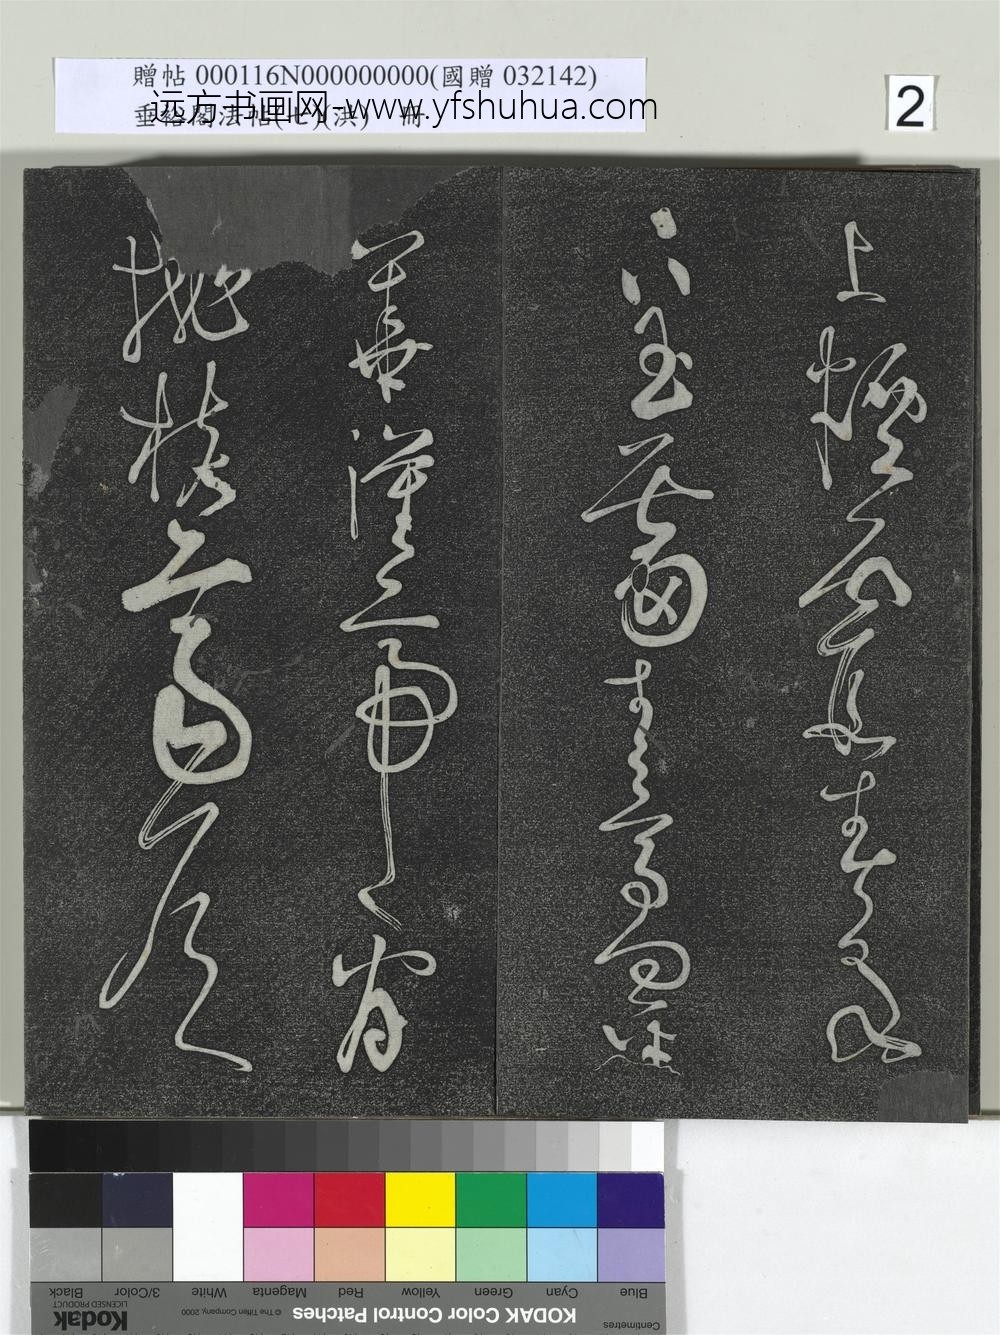 贈帖 000116N000000000(國贈 032142)
垂裕閣法帖(七)(洪) 一冊
远方书画网-www.yfshuhua.com
2
上煙霞春泉
下玉霤青鳥向金
華漢帝看
桃核齊侯
Centimetres
Blue Cyan Green Yellow Red Magenta White 3/Color Black
KODAK Color Control Patches
© The Tiffen Company, 2000
Kodak
LICENSED PRODUCT